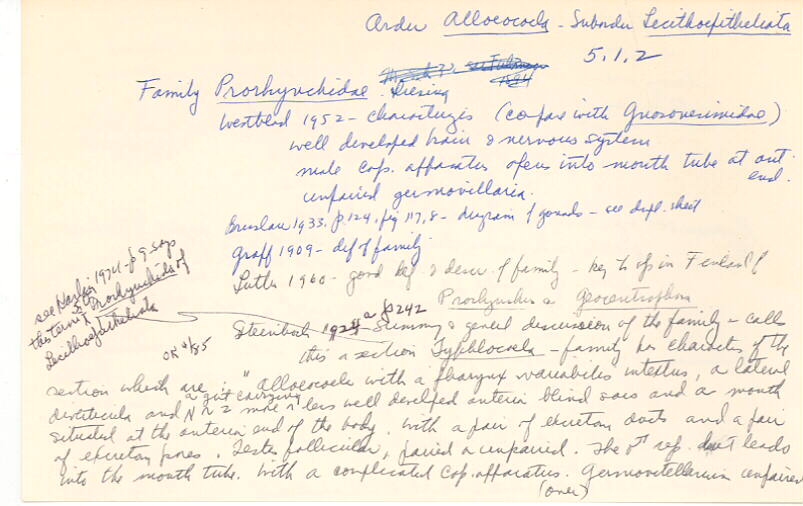 Order Alloeocoela - Suborder Lecithoepitheliata
5.1.2
Family Prorhynchidae Diesing
Westblad 1952 - characterizes (compare with Gnosonesimidae)
well developed brain & nervous system
male cop. apparatus opens into mouth tube at ant.
end.
unpaired germovitellaria.
Bresslau 1933, p. 124, fig 117, 8 - diagram of gonads - see dupl. sheet
Graff 1909 - def of family
Luther 1960 - good def. & descr. of family - key to sp in Finland of
Prorhynchus & Geocentrophora
see Karling 1974 - p 9 says
this term
Prorhynchida of
Lecithoepitheliata
OK 4/85
Steinböck 1924 a p242 - Summary & general discussion of the family - calls
this a section Typhlocoela - family has characters of the
section which are: "Alloeocoela with a pharynx variabilis intestus, a lateral
diverticula and a gut carrying 1 or 2 more or less well developed anterior blind sacs and a mouth
situated at the anterior end of the body. With a pair of excretory ducts and a pair
of excretory pores. Testes follicular, paired or unpaired. The ♂ rep. duct leads
into the mouth tube. With a complicated cop. apparatus. Germovitellarium unpaired
(over)